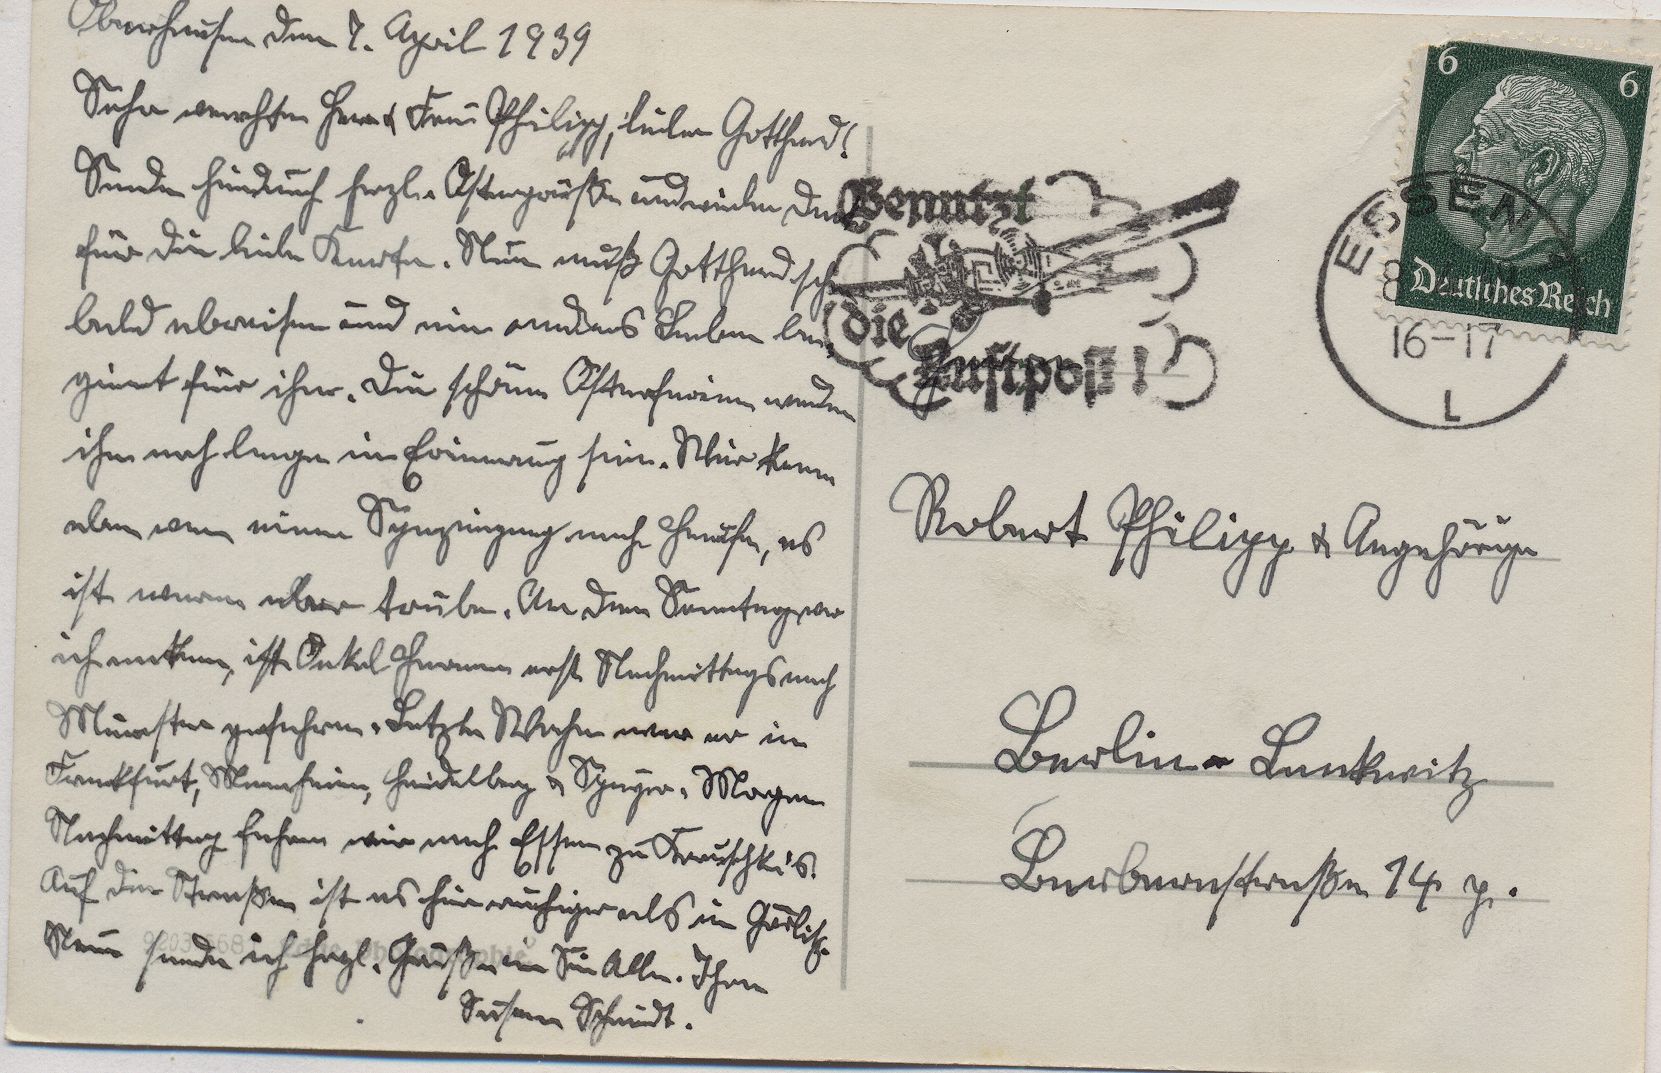 Oberhausen den 7. April 1939
Sehr verehrter Herr & Frau Philipp, lieber Gotthard!
Sende hierdurch herzl. Ostergrüße und vielen Dank
für die liebe Karte. Nun muß Gotthard schon
bald abreisen und ein anderes Leben be-
ginnt für ihn. Die schönen Osterferien werden
ihm noch lange in Erinnerung sein. Wir kamen
eben von einem Spaziergang nach Hause, es
ist warm aber trübe. An dem Sonntag wo
ich ankam, ist Onkel Hermann erst Nachmittags nach
Münster gefahren. Letzte Woche war er in
Frankfurt, Mannheim, Heidelberg & Speyer. Morgen
Nachmittag fahren wir nach Essen zu
Auf den Straßen ist es hier ruhiger als in Görlitz.
Nun sende ich herzl. Grüße an Sie Alle. Ihre
Susanne Schmidt.
Benutzt
die
Luftpost!
ESSEN
8
16-17
L
6 6
Deutsches Reich
Robert Philipp & Angehörige
Berlin-Lankwitz
14 p.